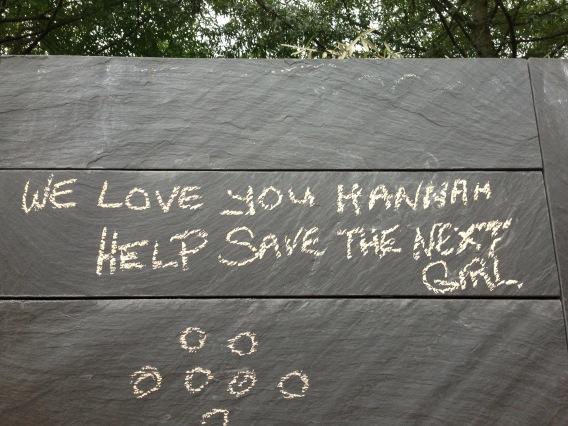 WE LOVE YOU HANNAH
HELP SAVE THE NEXT
GIRL